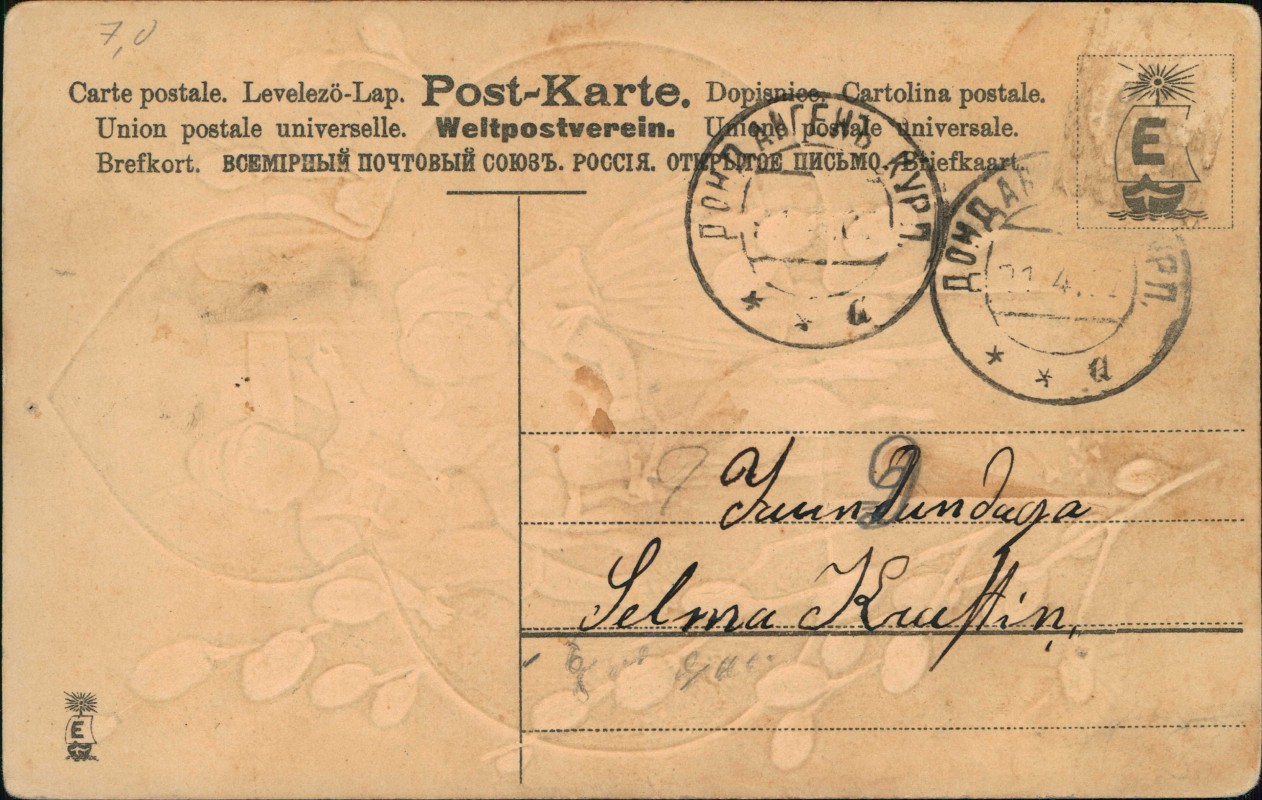 7,0
Carte postale. Levelezö-Lap. Post-Karte. Dopisnice. Cartolina postale.
Union postale universelle. Weltpostverein. Unione postale universale.
Brefkort. ВСЕМІРНЫЙ ПОЧТОВЫЙ СОЮЗЪ. РОССІЯ. ОТКРЫТОЕ ПИСЬМО. Briefkaart.
E
ДОНДАНГЕНЪ КУРЛ
ДОНДАН УРЛ.
21.4.
a
a
2
Selma
E